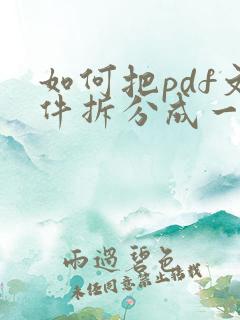 如何把pdf文
件拆分成一
雨過碧色
未经同意禁止搭载